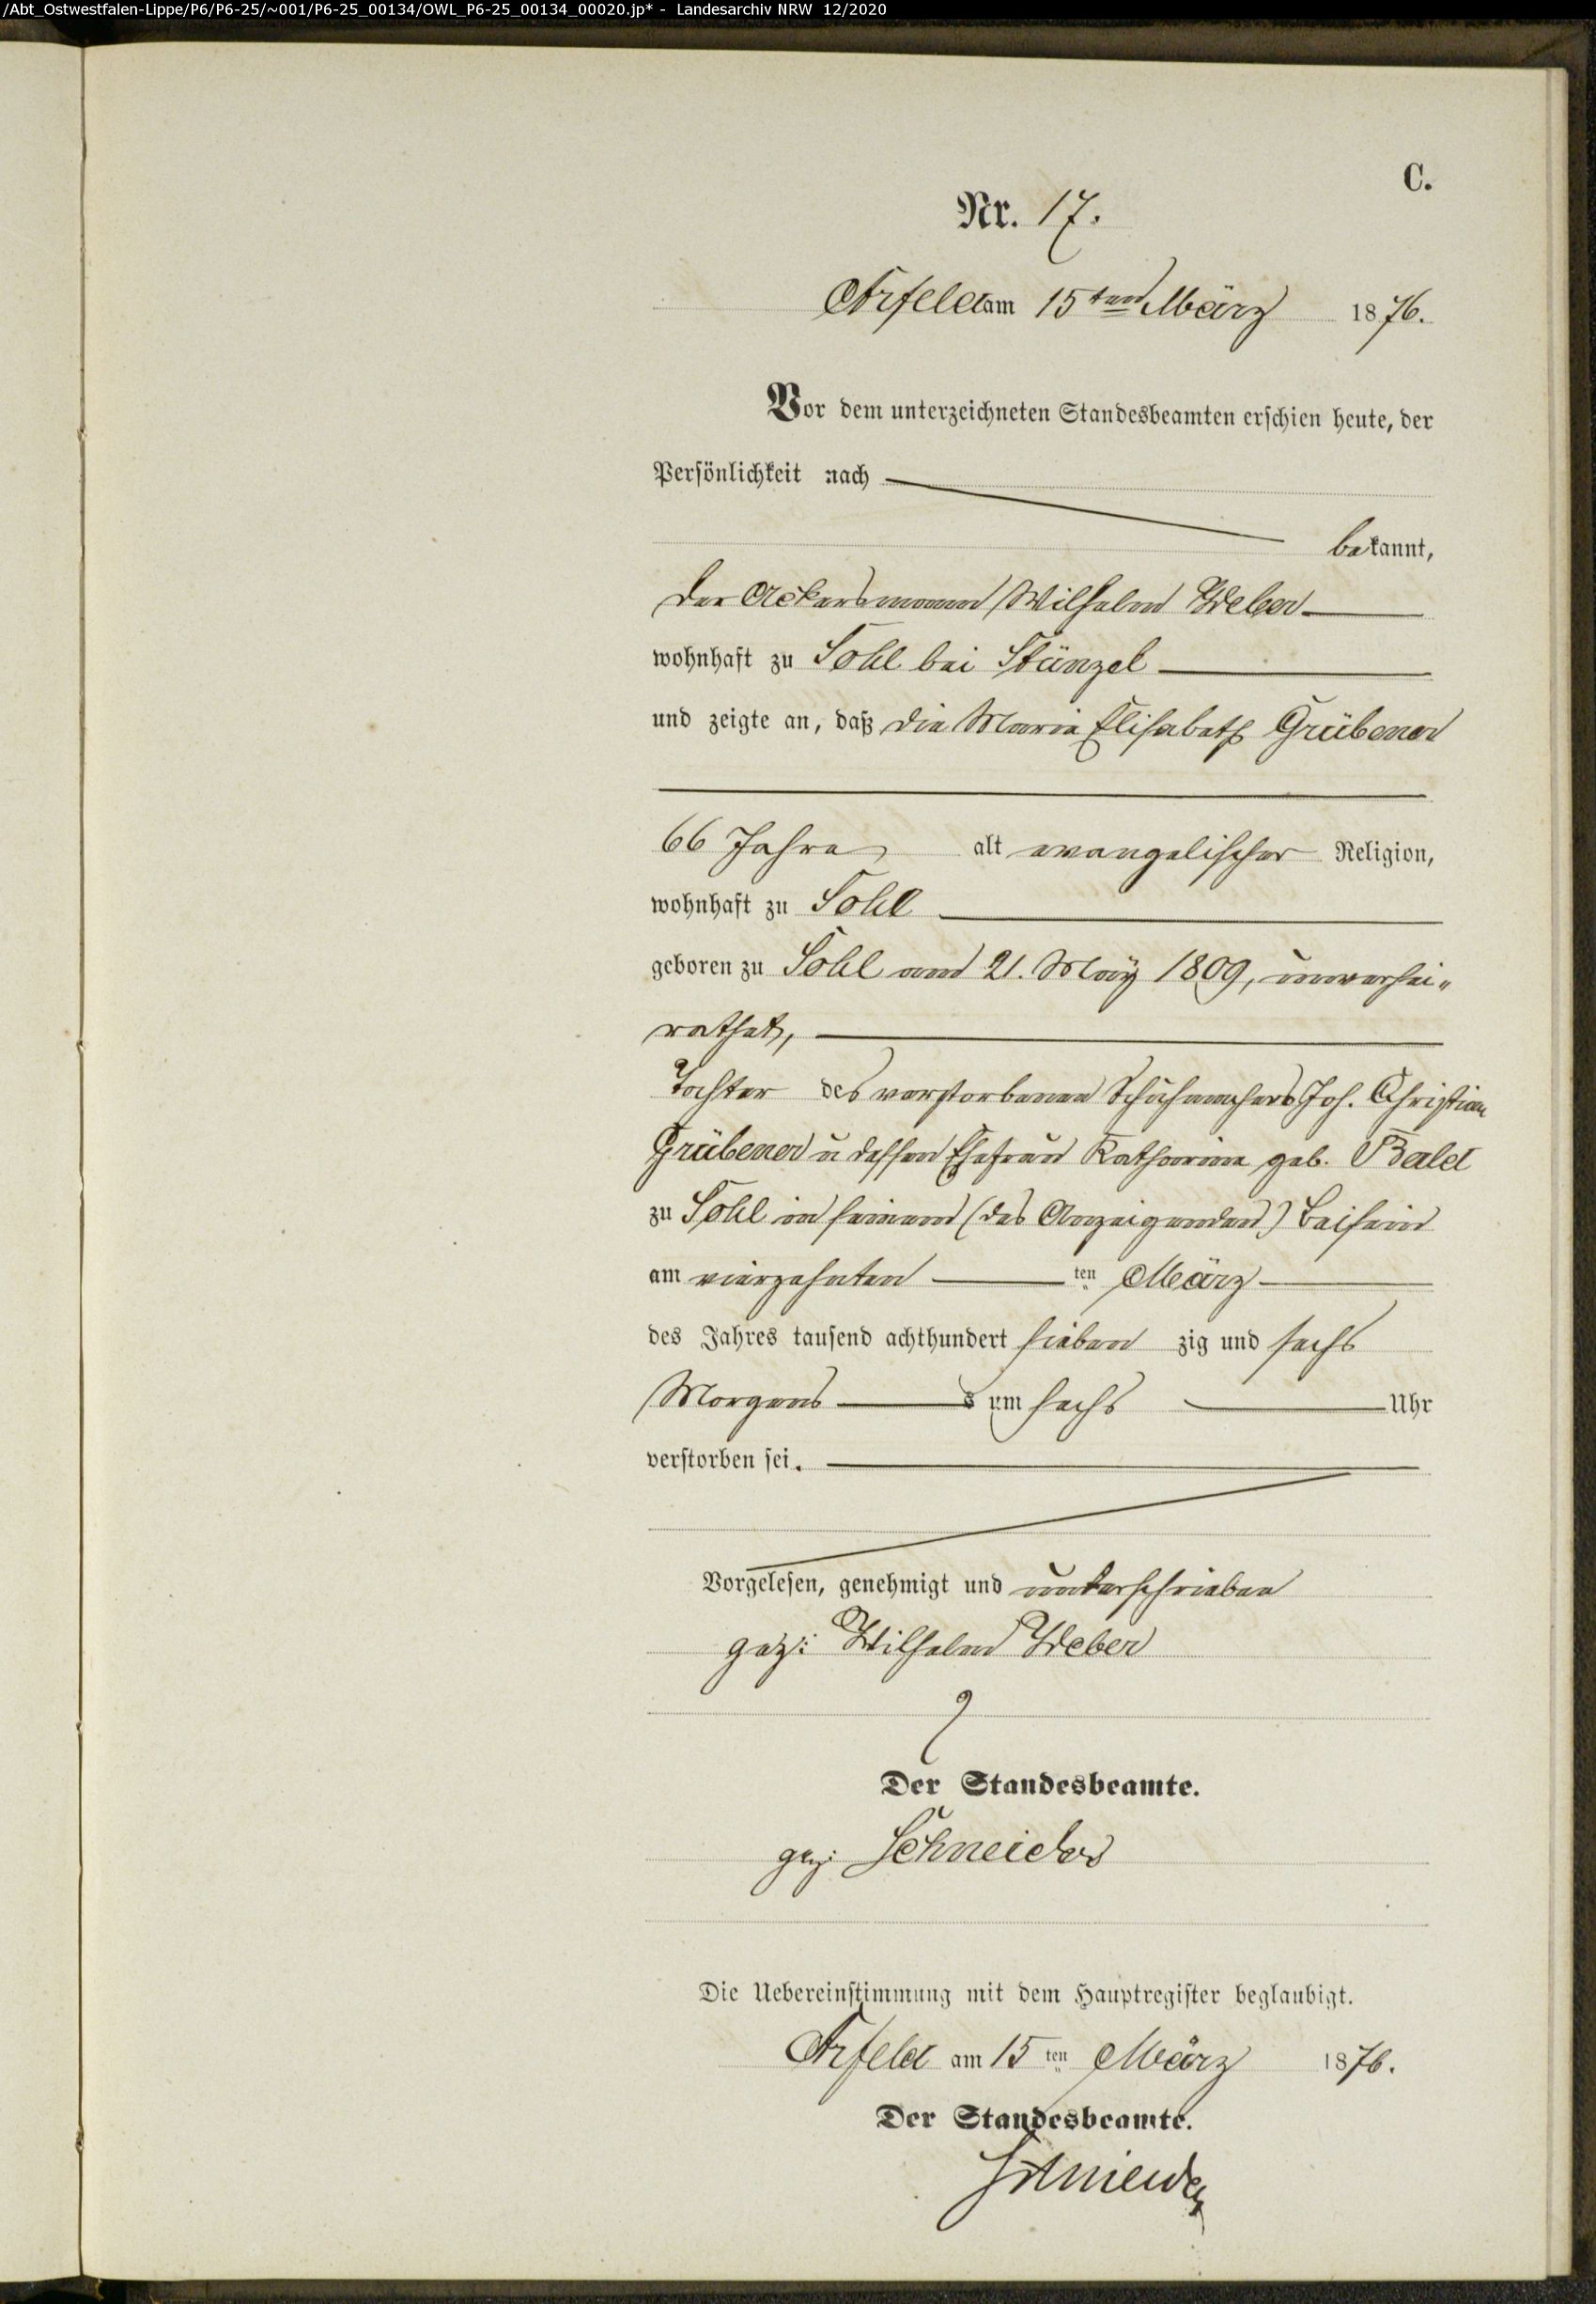 /Abt_Ostwestfalen-Lippe/P6/P6-25/~001/P6-25_00134/OWL_P6-25_00134_00020.jp* - Landesarchiv NRW 12/2020
C.
Nr. 17.
Arfeld am 15ten März 1876.
Vor dem unterzeichneten Standesbeamten erschien heute, der
Persönlichkeit nach
bekannt,
der Ackersmann Wilhelm Weber
wohnhaft zu Sohl bei Stünzel
und zeigte an, daß die Maria Elisabeth Grübener
66 Jahre alt evangelischer Religion,
wohnhaft zu Sohl
geboren zu Sohl am 21. May 1809, unverhei-
rathet,
Tochter des verstorbenen Schuhmachers Joh. Christian
Grübener u dessen Ehefrau Katharine geb. Bald
zu Sohl in seinem (des Anzeigenden) Beisein
am vierzehnten ten März
des Jahres tausend achthundert sieben zig und sechs
Morgens s um sechs Uhr
verstorben sei.
Vorgelesen, genehmigt und unterschrieben
gez: Wilhelm Weber
Der Standesbeamte.
gez: Schneider
Die Uebereinstimmung mit dem Hauptregister beglaubigt.
Arfeld am 15 ten März 1876.
Der Standesbeamte.
Schneider